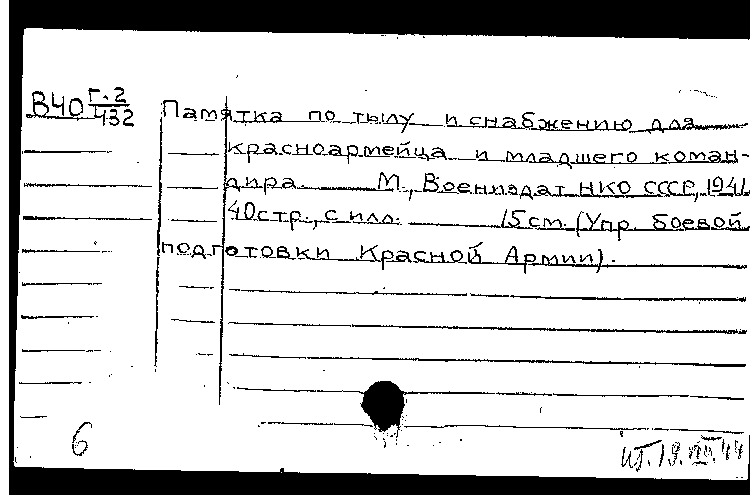 В40 Г.2/432
Памятка по тылу и снабжению для
красноармейца и младшего коман-
дира. М., Воениздат НКО СССР, 1941.
40стр., с илл. 15см. (Упр. боевой
подготовки Красной Армии).
6
19.VII.44